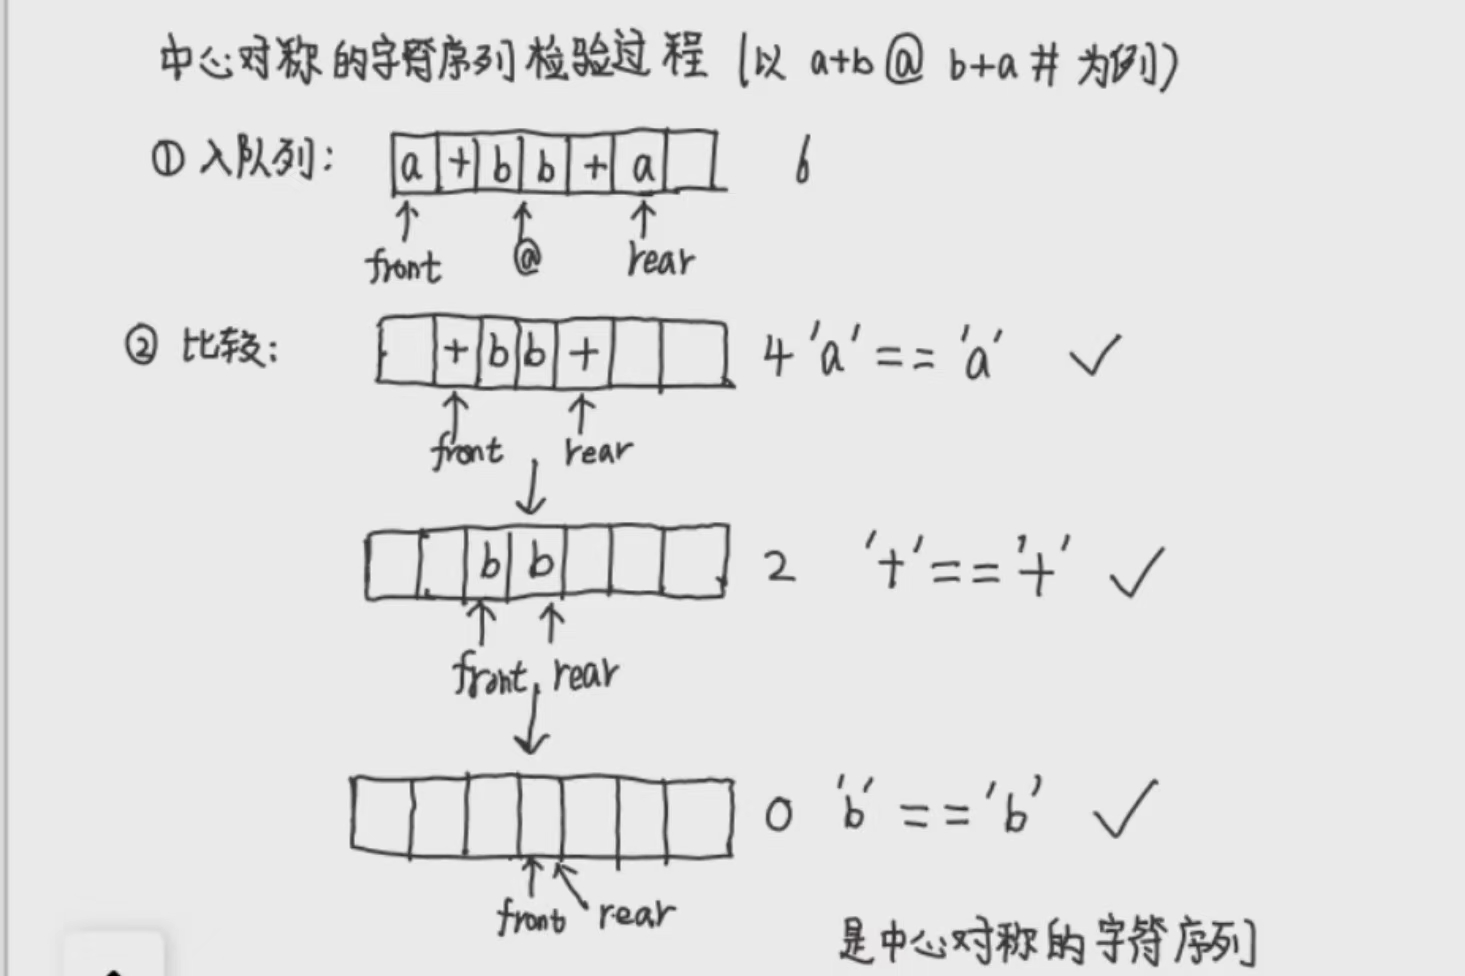 中心对称的字符序列检验过程 (以 a+b @ b+a # 为例)
① 入队列: a + b b + a 6
front @ rear
② 比较: + b b + 4 'a' == 'a' ✓
front rear
b b 2 '+' == '+' ✓
front rear
0 'b' == 'b' ✓
front rear
是中心对称的字符序列